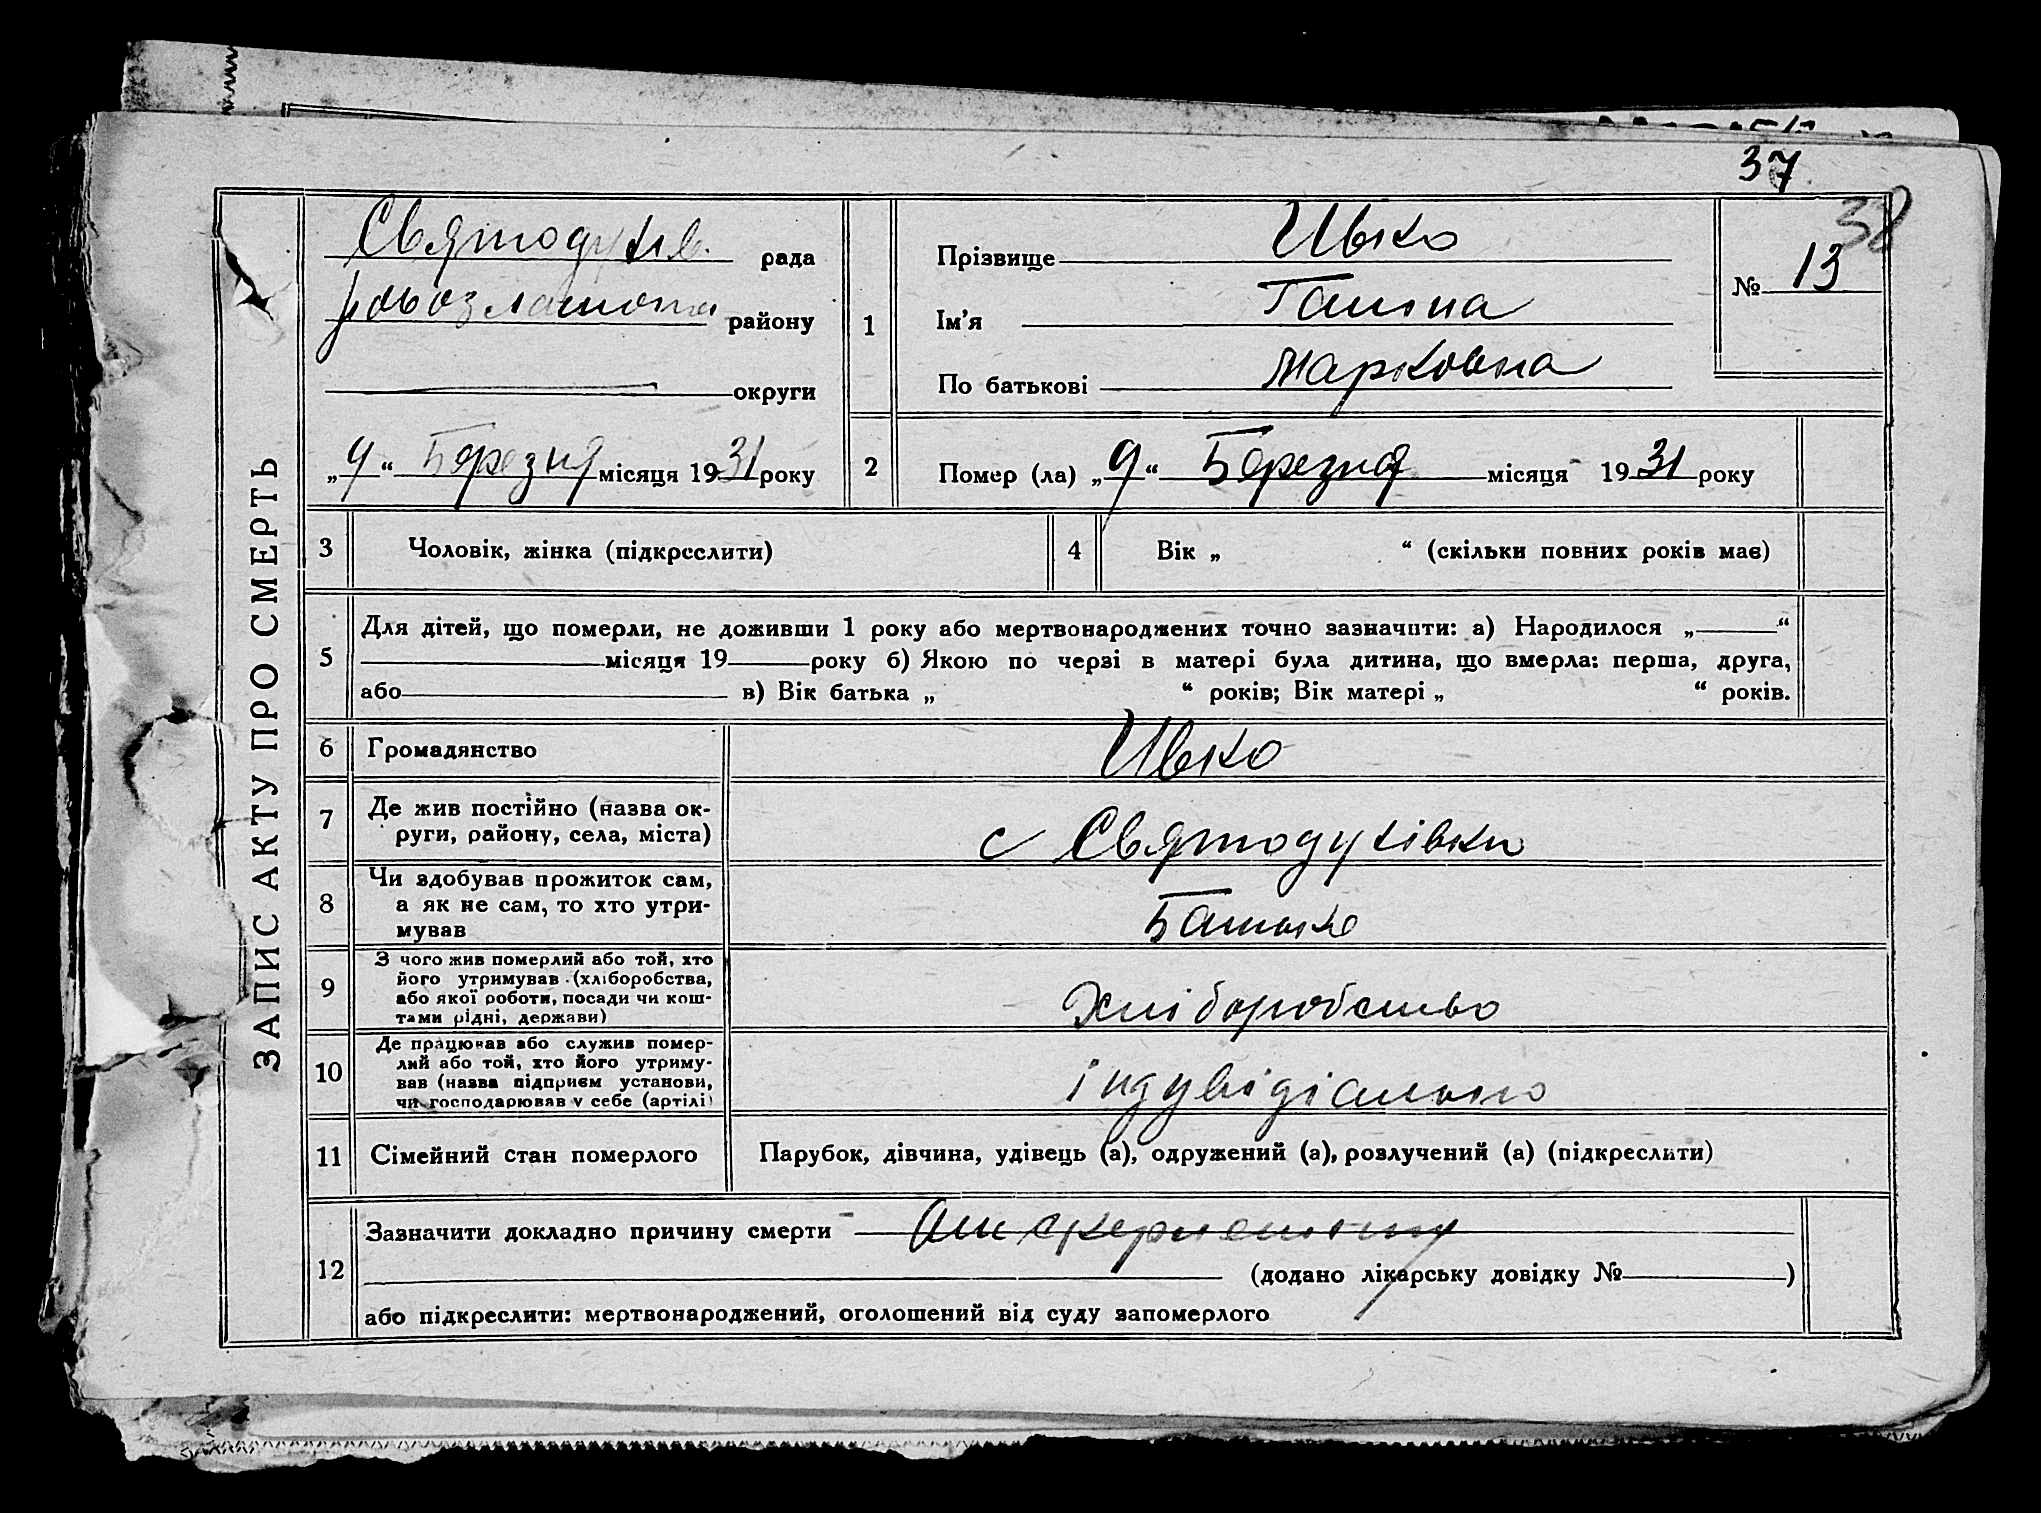 37
38
ЗАПИС АКТУ ПРО СМЕРТЬ
Святодухів. рада
району
округи
„9“ Березня місяця 1931 року
1
Прізвище Ивко
Ім’я Галина
По батькові Марковна
№ 13
2
Помер (ла) „9“ Березня місяця 1931 року
3 Чоловік, жінка (підкреслити)
4 Вік „ “ (скільки повних років має)
5
Для дітей, що померли, не доживши 1 року або мертвонароджених точно зазначити: а) Народилося „ “
місяця 19 року б) Якою по черзі в матері була дитина, що вмерла: перша, друга,
або в) Вік батька „ “ років; Вік матері „ “ років.
6 Громадянство Ивко
7 Де жив постійно (назва ок-
руги, району, села, міста)
с Святодухівки
8 Чи здобував прожиток сам,
а як не сам, то хто утри-
мував
Батько
9 З чого жив померлий або той, хто
його утримував (хліборобства,
або якої роботи, посади чи кош-
тами рідні, держави)
Хліборобство
10 Де працював або служив помер-
лий або той, хто його утриму-
вав (назва підприєм установи,
чи господарював у себе (артілі)
11 Сімейний стан померлого Парубок, дівчина, удівець (а), одружений (а), розлучений (а) (підкреслити)
12
Зазначити докладно причину смерти
(додано лікарську довідку № )
або підкреслити: мертвонароджений, оголошений від суду запомерлого